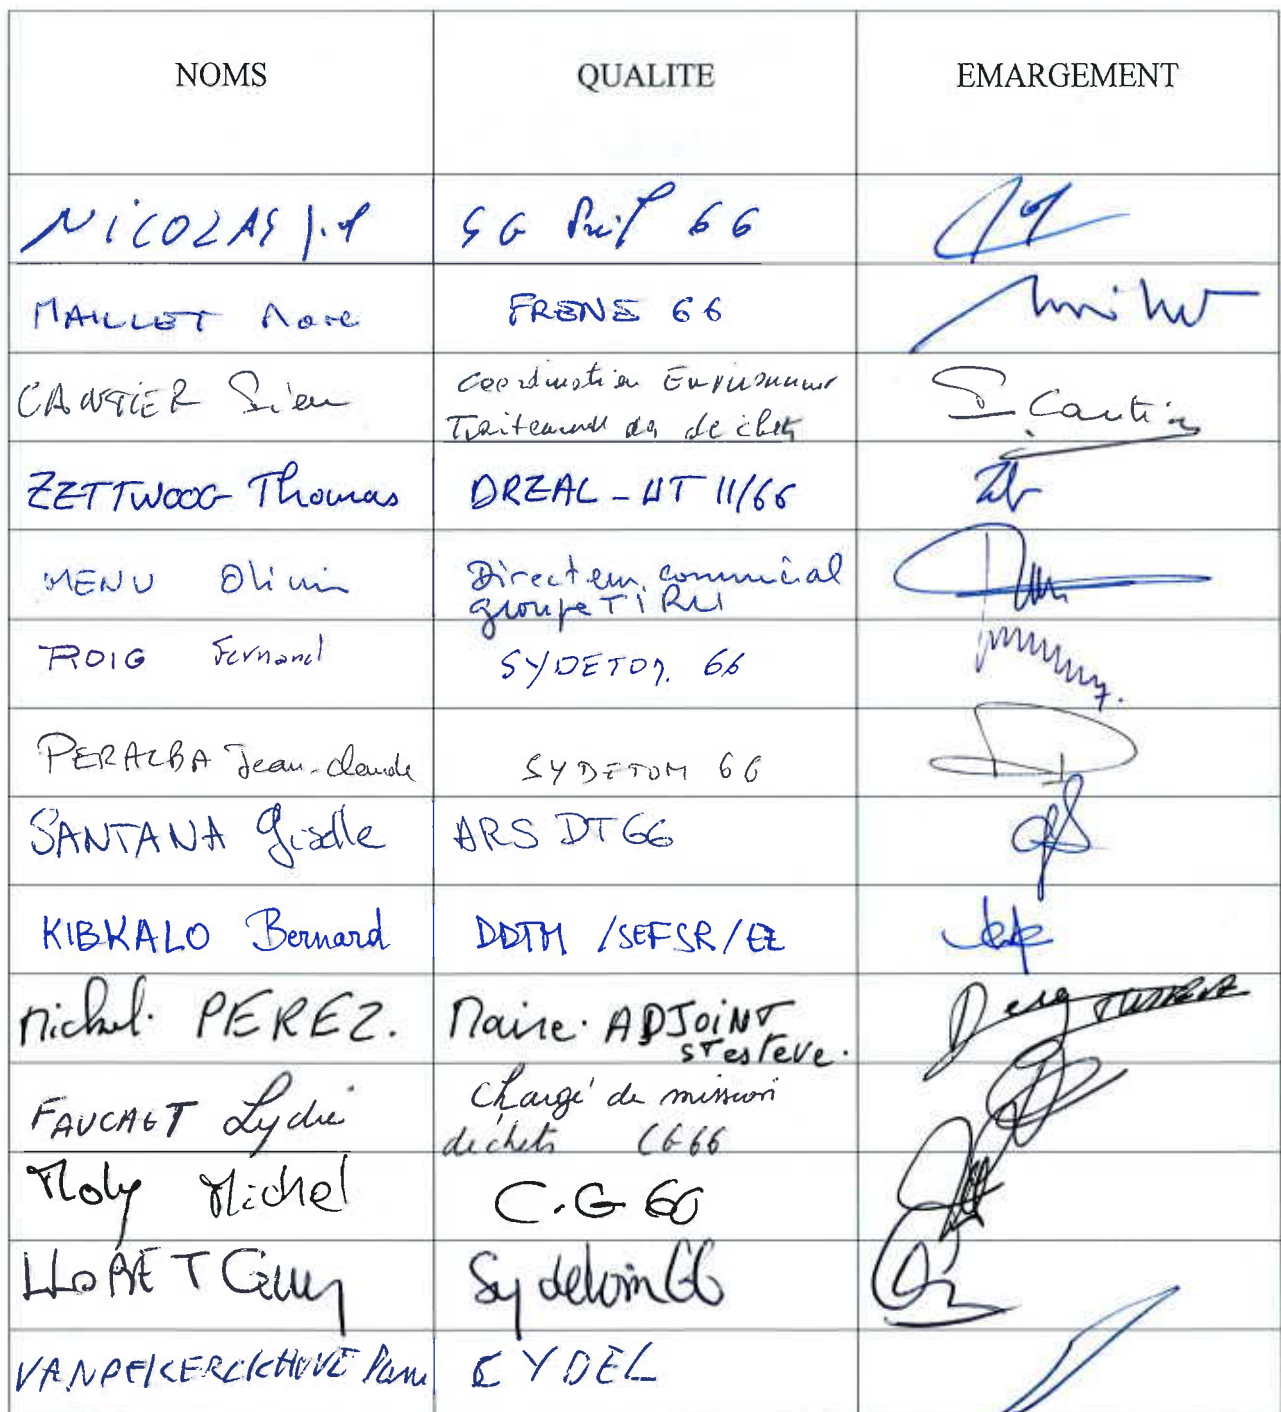 NOMS QUALITE EMARGEMENT
NICOLAS J.M SG Préf 66
MAILLET Marc FRENE 66
CANTIER Coordination Environnement
Traitement des déchets
S. Cantier
ZETTWOOG Thomas DREAL - UT 11/66
MENU Olivier Directeur commercial
groupe TIRU
ROIG Fernand SYDETOM 66
PERALBA Jean-Claude SYDETOM 66
SANTANA Giselle ARS DT66
KIBKALO Bernard DDTM /SEFSR/
Michel PEREZ. Maire ADJOINT
ST esteve.
Lydie Chargé de mission
déchets CG66
Moly Michel C.G 66
LLORET Guy Sydetom 66
VANDEKERCKHOVE